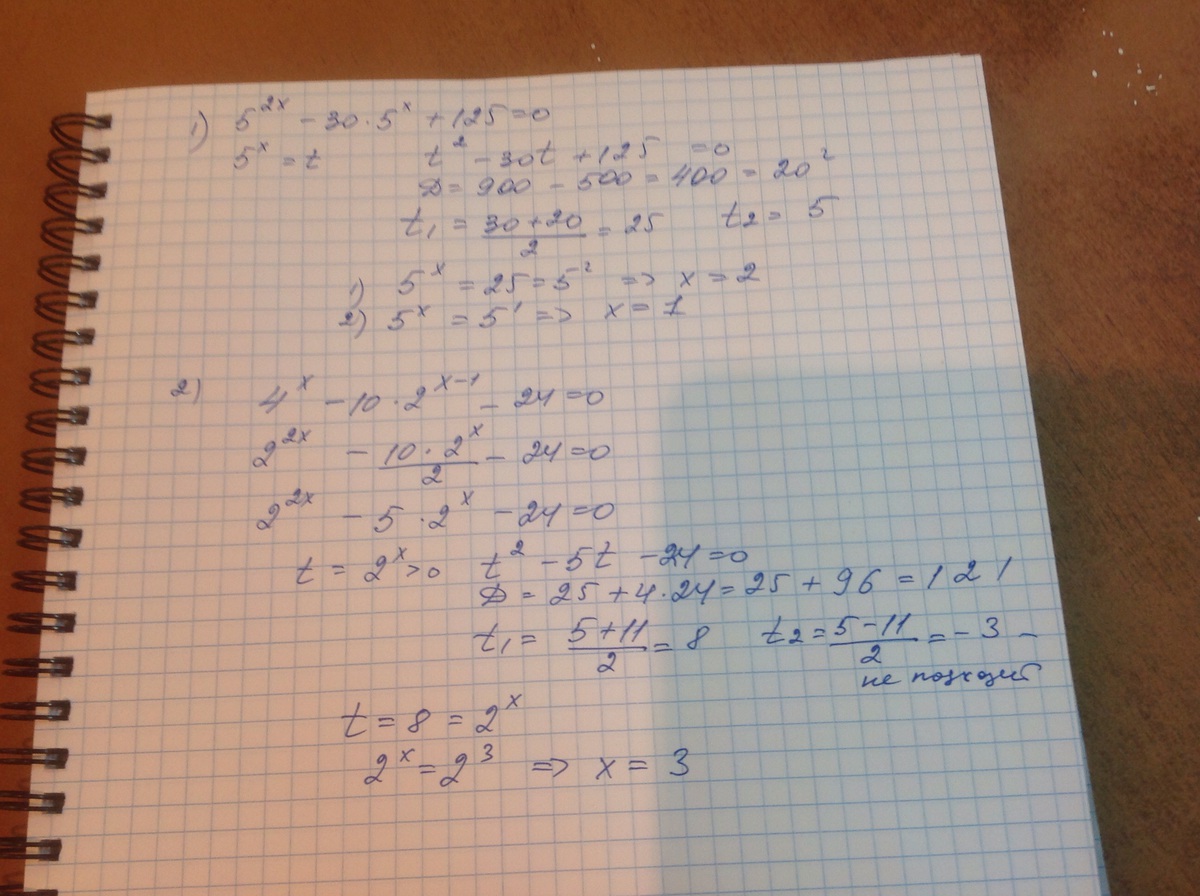 1) 5^{2x} - 30 · 5^x + 125 = 0
5^x = t t^2 - 30t + 125 = 0
D = 900 - 500 = 400 = 20^2
t_1 = \frac{30+20}{2} = 25 t_2 = 5
1) 5^x = 25 = 5^2 => x = 2
2) 5^x = 5^1 => x = 1
2) 4^x - 10 · 2^{x-1} - 24 = 0
2^{2x} - \frac{10 · 2^x}{2} - 24 = 0
2^{2x} - 5 · 2^x - 24 = 0
t = 2^x > 0 t^2 - 5t - 24 = 0
D = 25 + 4 · 24 = 25 + 96 = 121
t_1 = \frac{5+11}{2} = 8 t_2 = \frac{5-11}{2} = -3 -
не подходит
t = 8 = 2^x
2^x = 2^3 => x = 3